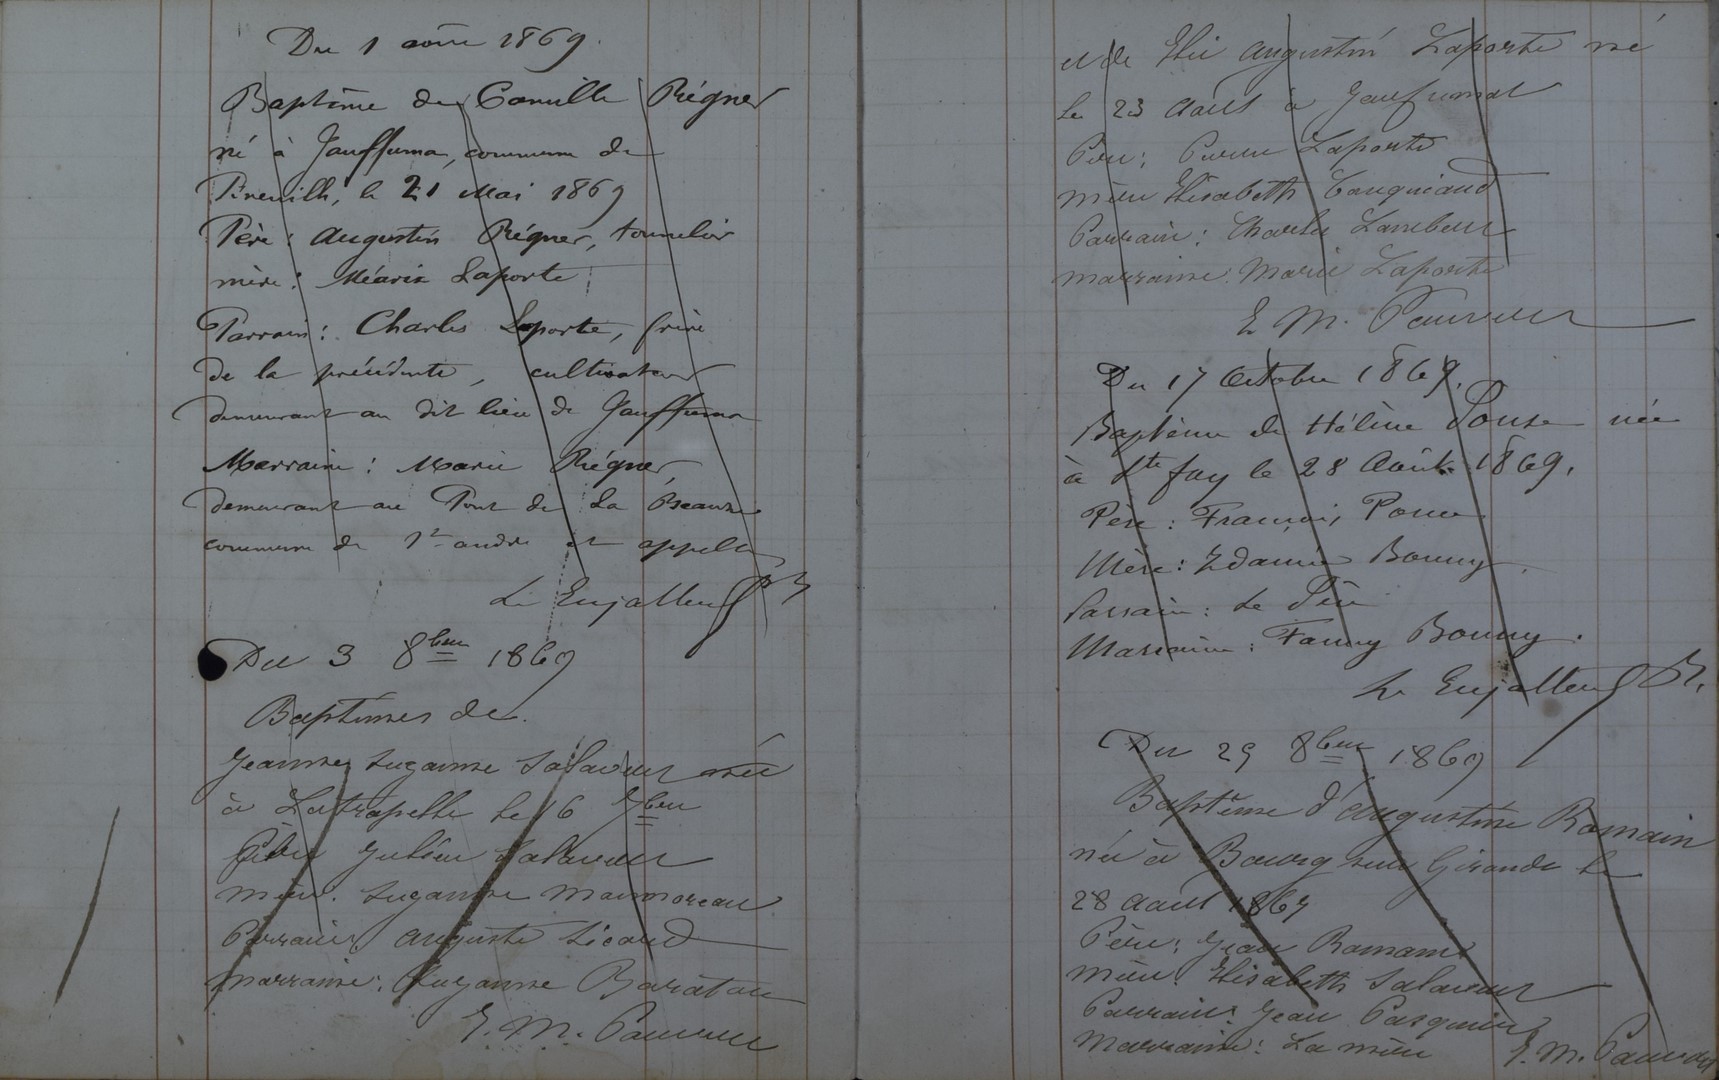 Du 1 août 1869.
Baptême de Camille Régner
né à Jauffuma, commune de
Pineuilh, le 21 Mai 1869
Père : Augustin Régner, tonnelier
mère : Marie Laporte
Parrain : Charles Laporte, frère
de la précédente, cultivateur
demeurant au dit lieu de Jauffuma
Marraine : Marie Régner
demeurant au Pont de La Beauze
commune de St andré et appelle
Du 3 8bre 1869
Baptêmes de
Jeanne Suzanne Salaveur née
à Latrapelle le 16 7bre
Père Julien Salaveur
mère. Suzanne Maimoreau
Parrain Auguste Sicaud
Marraine : Suzanne Baratou
E. M. Pauvreur
et de Elie Augustin Laporte né
le 23 Août à Jaufumat
Père : Pierre Laporte
mère Elisabeth
Parrain : Charles Lambeur
marraine. Marie Laporte
E. M. Pauvreur
Du 17 Octobre 1869.
Baptême de Hélène Pouse née
à Ste foy le 28 Août 1869.
Père : François
Mère : Bonny
Parrain : Le Père
Marraine : Fanny Bonny.
Du 29 8bre 1869
Baptême d'Augustine Romain
née à Bourg sur Gironde le
28 Août 1869
Père : Jean Romain
mère. Elisabeth Salaveur
Parrain : Jean Pasquin
Marraine : La mère
E. M. Pauvreur